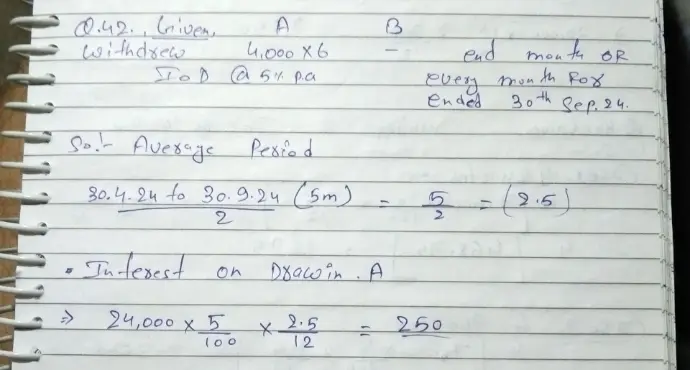 Q.42., Given, A B
Withdrew 4,000 x 6 - end month OR
IOD @ 5% p.a every month For
Ended 30th Sep. 24.
So:- Average Period
30.4.24 to 30.9.24 (5m) / 2 = 5/2 = (2.5)
• Interest on Drawin. A
⇒ 24,000 x 5/100 x 2.5/12 = 250